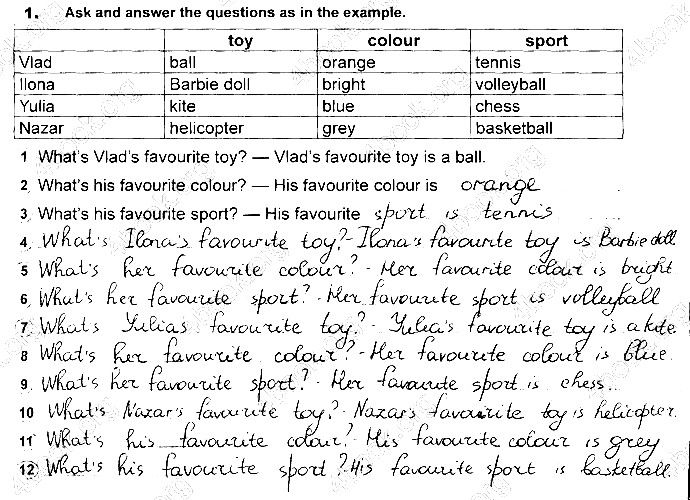 1. Ask and answer the questions as in the example.
toy colour sport
Vlad ball orange tennis
Ilona Barbie doll bright volleyball
Yulia kite blue chess
Nazar helicopter grey basketball
1 What's Vlad's favourite toy? — Vlad's favourite toy is a ball.
2 What's his favourite colour? — His favourite colour is orange.
3 What's his favourite sport? — His favourite sport is tennis
4. What's Ilona's favourite toy? - Ilona's favourite toy is Barbie doll
5 What's her favourite colour? - Her favourite colour is bright
6. What's her favourite sport? - Her favourite sport is volleyball
7. What's Yulia's favourite toy? - Yulia's favourite toy is a kite.
8 What's her favourite colour? - Her favourite colour is blue.
9. What's her favourite sport? - Her favourite sport is chess.
10 What's Nazar's favourite toy? - Nazar's favourite toy is helicopter.
11 What's his favourite colour? - His favourite colour is grey
12 What's his favourite sport? His favourite sport is basketball.